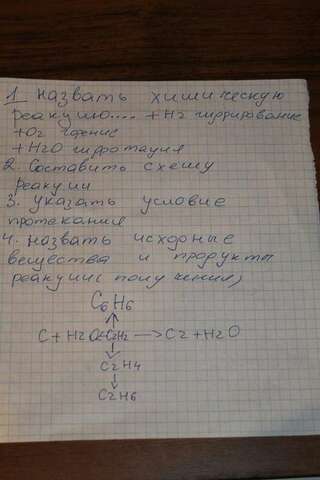 1 назвать химическую
реакцию.... +H2 гидрирование
+O2 горение
+H2O гидротация
2. Составить схему
реакции
3. указать условие
протекания
4. назвать исходные
вещества и продукты
реакции( получения)
C6H6
C + H2O <- C2H2 -> C2 + H2O
C2H4
C2H6